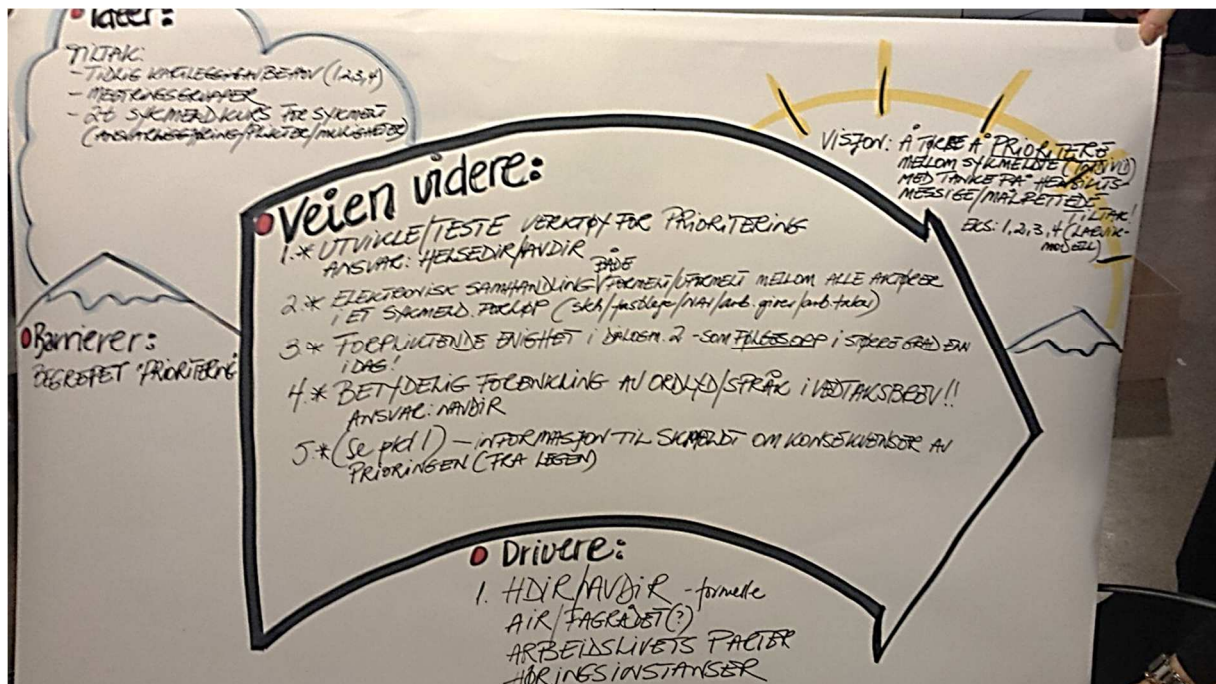 Ideer:
TILTAK:
- TIDLIG KARTLEGGING AV BEHOV (1,2,3,4)
- MESTRINGSGRUPPER
- 2t SYKMELD.KURS FOR SYKMELDT
(ANSVARLIGGJØRING/PLIKTER/MULIGHETER)
VISJON: Å TØRRE Å PRIORITERE
MELLOM SYKMELDTE (INDIVID)
MED TANKE PÅ HENSIKTS-
MESSIGE/MÅLRETTEDE
TILTAK!
EKS: 1,2,3,4 (LARVIK-
MODELL)
Veien videre:
1.* UTVIKLE/TESTE VERKTØY FOR PRIORITERING
ANSVAR: HELSEDIR/NAVDIR
BÅDE
2.* ELEKTRONISK SAMHANDLING FORMELT/UFORMELT MELLOM ALLE AKTØRER
I ET SYKMELD.FORLØP (skh/fastlege/NAV/arb.giver/arb.taker)
3.* FORPLIKTENDE ENIGHET I DIALOGM. 2 - SOM FØLGES OPP I STØRRE GRAD ENN
IDAG!
4.* BETYDELIG FORENKLING AV ORDLYD/SPRÅK I VEDTAKSBREV!!
ANSVAR: NAVDIR
5.* (Se pkt 1) - INFORMASJON TIL SKMELDT OM KONSEKVENSER AV
PRIORINGEN (FRA LEGEN)
Barrierer:
BEGREPET "PRIORITERING"
Drivere:
1. HDIR/NAVDIR - formelle
AIR/FAGRÅDET(?)
ARBEIDSLIVETS PARTER
HØRINGSINSTANSER